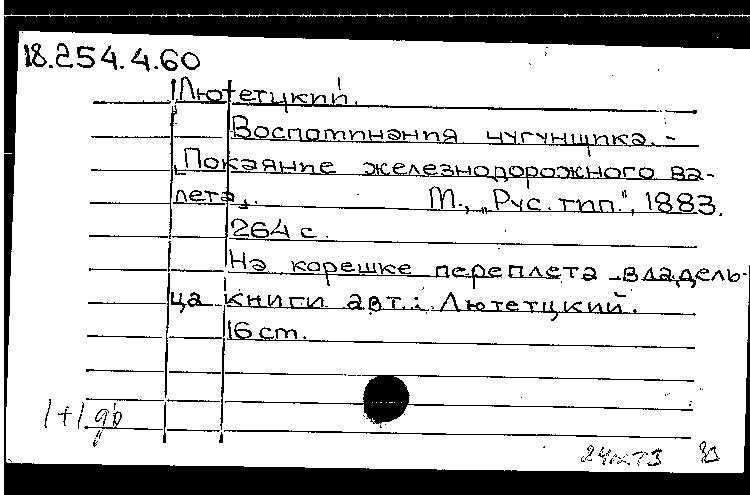 18.254.4.60
Лютетцкий.
Воспоминания чугунщика. -
„Покаяние железнодорожного ва-
лета„. М., „Рус. тип.", 1883.
264 с.
На корешке переплета владель-
ца книги авт.: Лютетцкий.
16 cm.
1+1 др